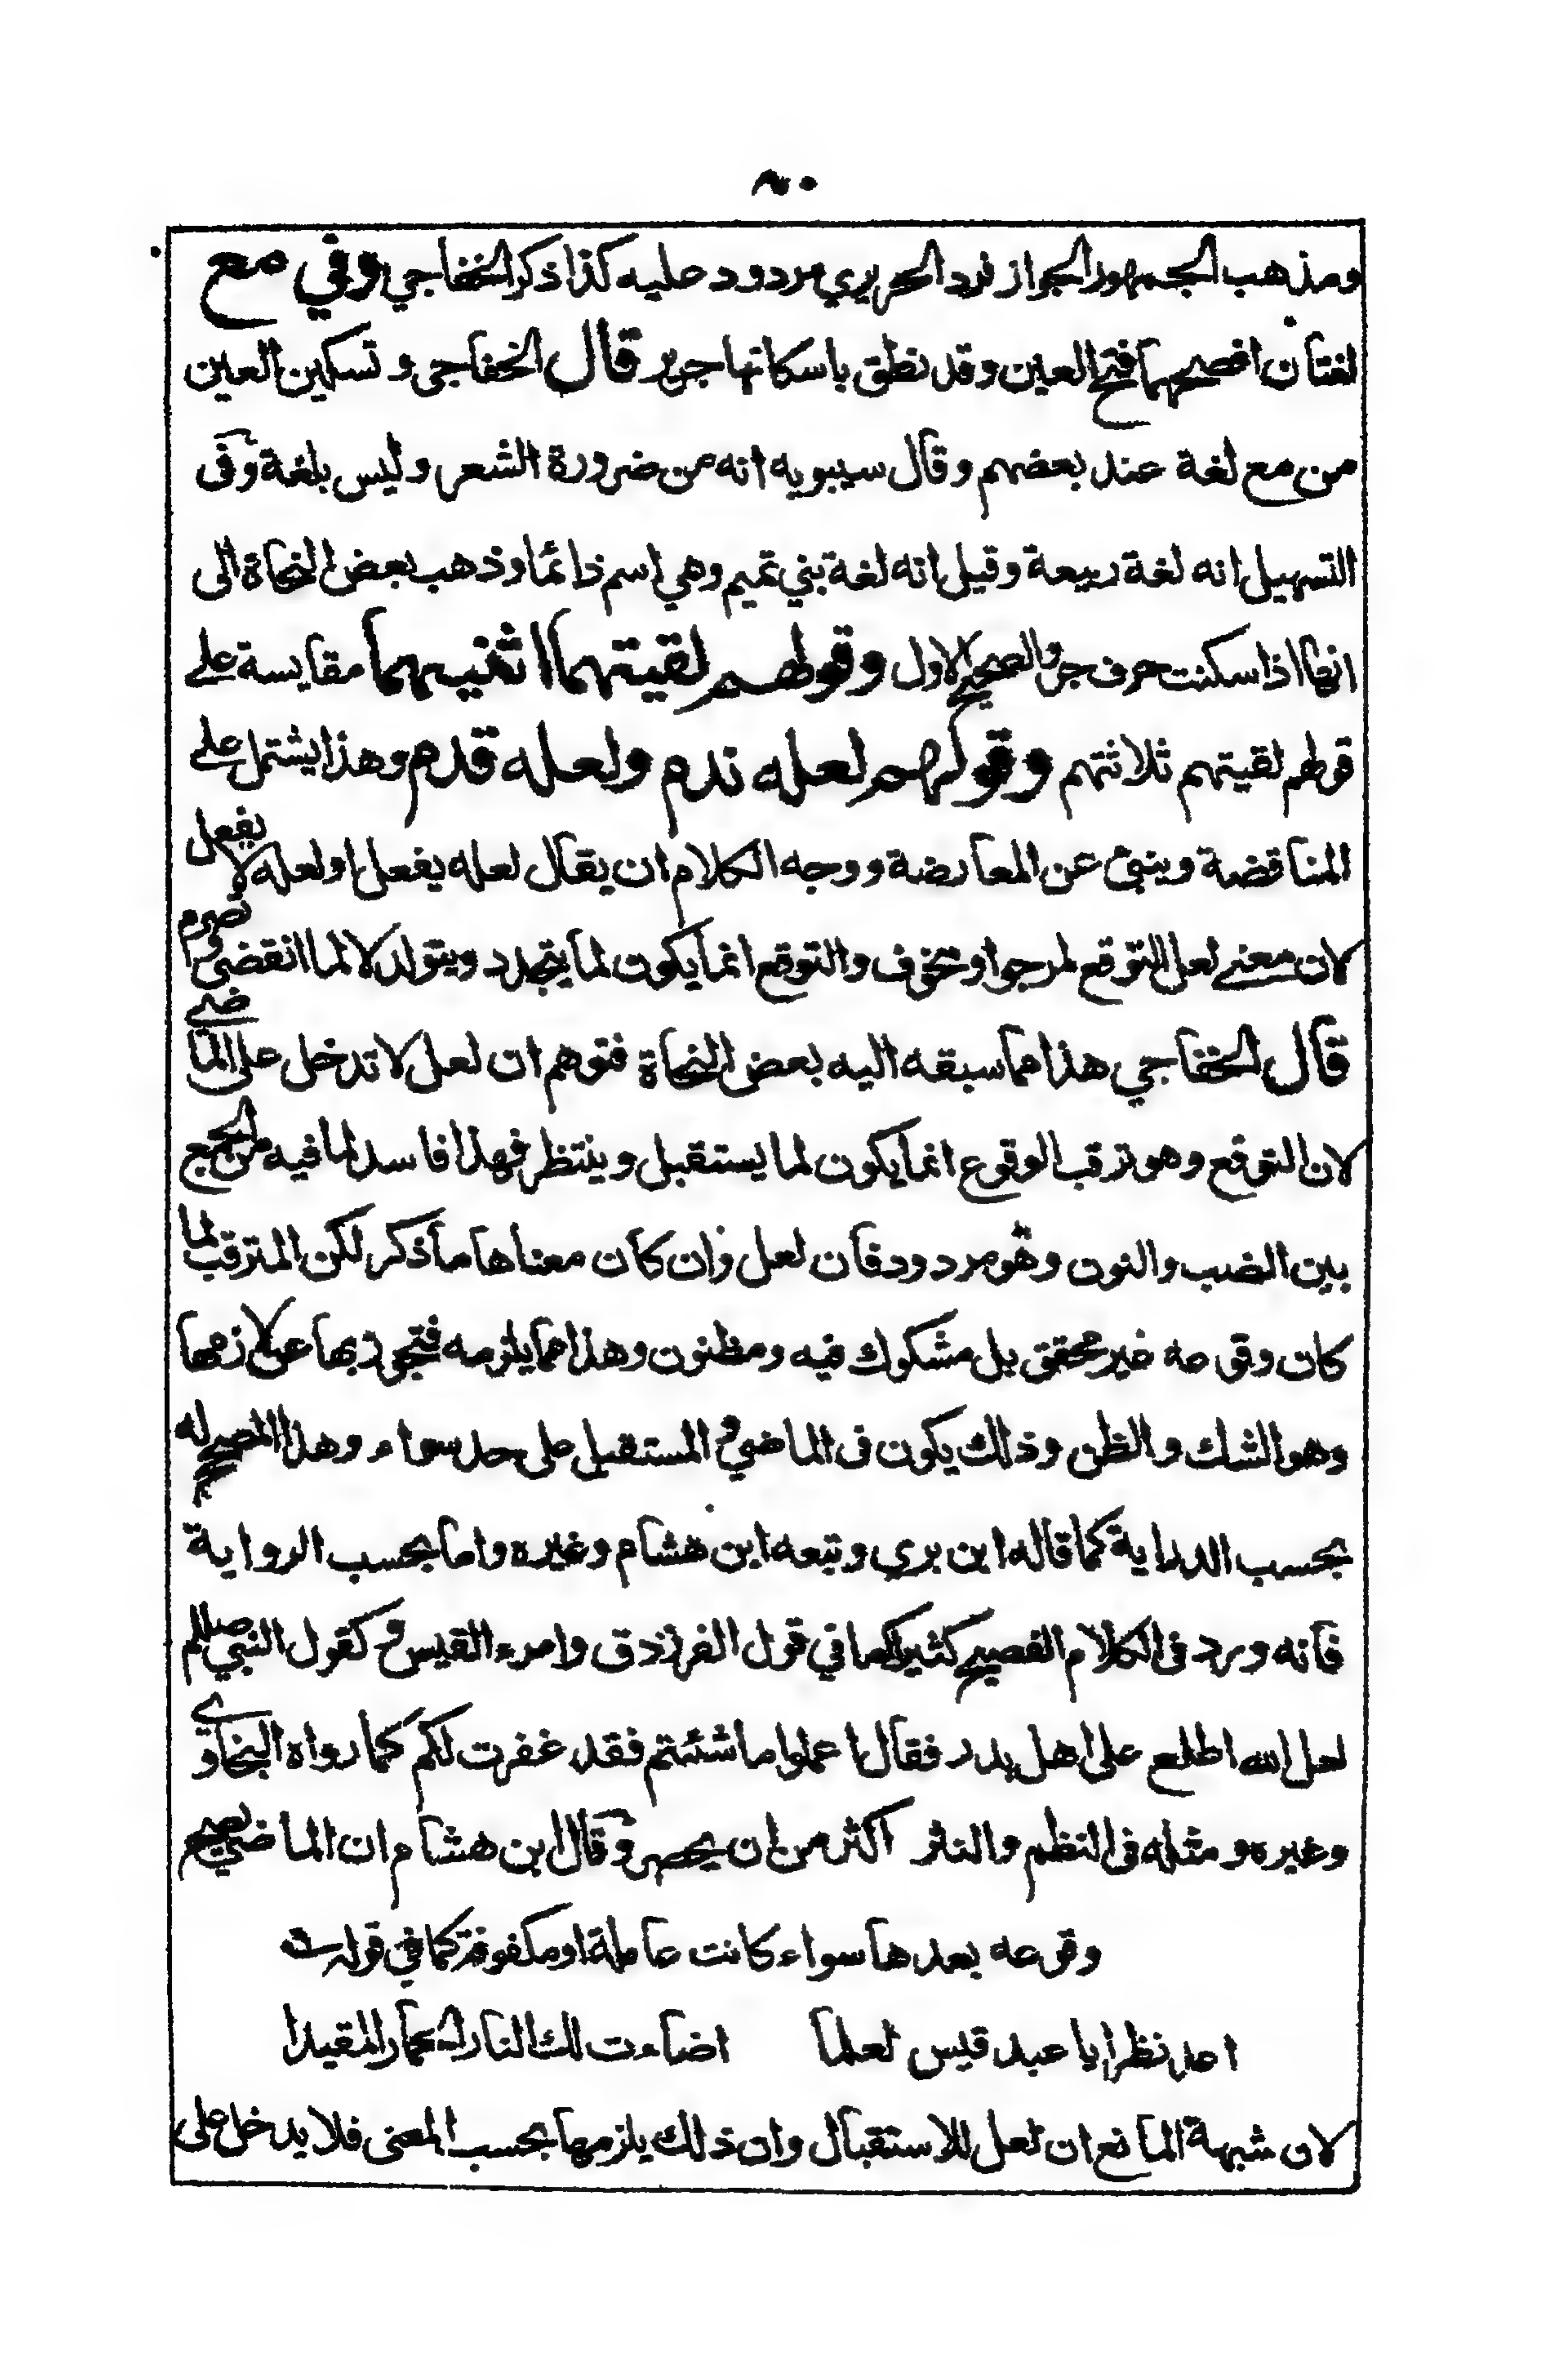 ٨٠
ومذهب الجمهور الجواز فرد الحريري مردود عليه كذا ذكر الخفاجي وفي مع
لغتان افصحهما فتح العين وقد نطق باسكانها جرير قال الخفاجي وتسكين العين
من مع لغة عند بعضهم وقال سيبويه انه من ضرورة الشعر وليس بلغة وفى
التسهيل انه لغة ربيعة وقيل انه لغة بني تميم وهي اسم دائما وذهب بعض النحاة الى
انها اذا سكنت حرف جر والصحيح الاول وقولهم لقيتهما اثنيهما مقايسة على
قولهم لقيتهم ثلاثتهم وقولهم لعله ندم ولعله قدم وهذا يشتمل على
المناقضة وينبئ عن المعارضة ووجه الكلام ان يقال لعله يفعل او لعله لا يفعل
لان معنى لعل التوقع لمرجو او مخوف والتوقع انما يكون لما يتجدد ويتولد لا لما انقضى وتصرم
قال الخفاجي هذا مما سبقه اليه بعض النحاة فتوهم ان لعل لا تدخل على الماضي
لان التوقع وهو ترقب الوقوع انما يكون لما يستقبل وينتظر فهذا فاسد لما فيه من الجمع
بين الضب والنون وهو مردود فان لعل وان كان معناها ما ذكر لكن المترقب لما
كان وقوعه غير محقق بل مشكوك فيه ومظنون وهذا مما يلزمه فتجوز بها عن لازمها
وهو الشك والظن وذلك يكون فى الماضي و المستقبل على حد سواء وهذا المصحح له
بحسب الدراية كما قاله ابن بري وتبعه ابن هشام وغيره واما بحسب الرواية
فانه ورد فى الكلام الفصيح كثيرا كما في قول الفرزدق وامرء القيس و كقول النبي صللم
لعل الله اطلع على اهل بدر فقال اعملوا ما شئتم فقد غفرت لكم كما رواه البخاري
وغيره ومثله فى النظم والنثر اكثر من ان يحصر وقال ابن هشام ان الماضي يصح
وقوعه بعدها سواء كانت عاملة او مكفوفة كما في قوله
اعد نظرا يا عبد قيس لعلما اضاءت لك النار الحمار المقيدا
لان شبهة المانع ان لعل للاستقبال وان ذلك يلزمها بحسب المعنى فلا يدخل على